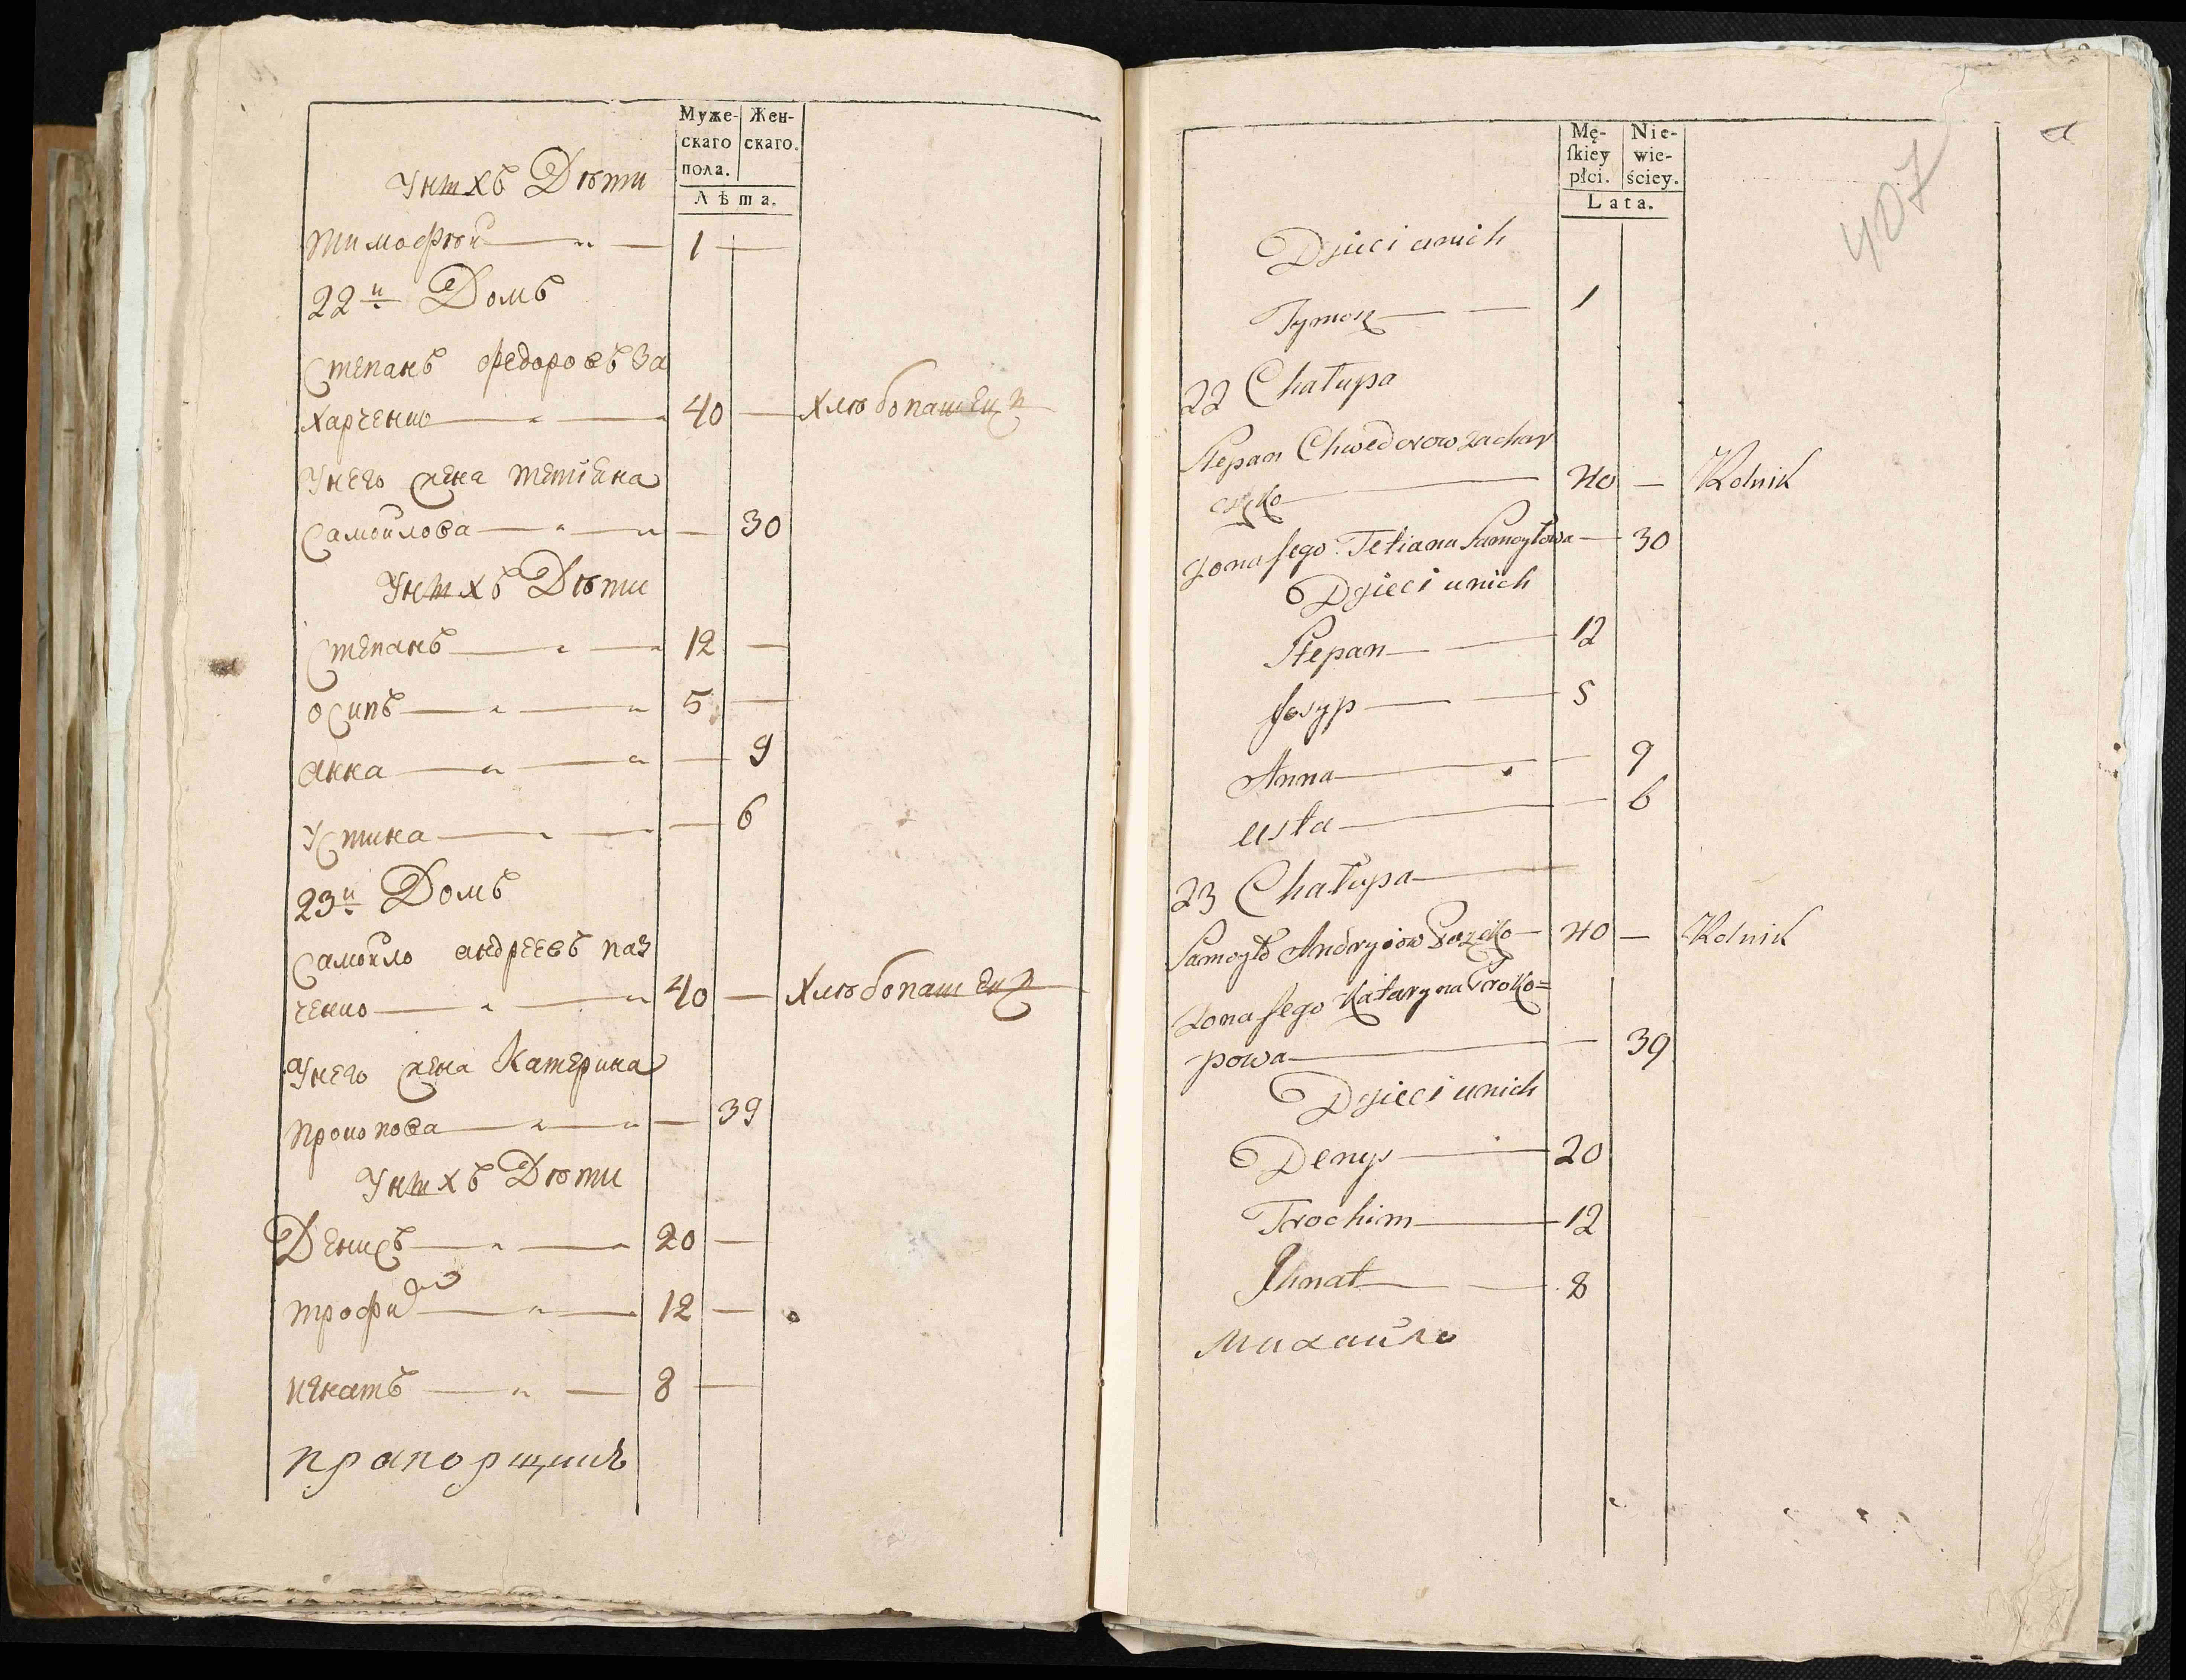 Муже-
скаго
пола.
Жен-
скаго.
Лѣта.
У нихъ Дѣти
тимофѣй 1
22й Домъ
Степанъ федоровъ За
харченко 40 — хлѣбопашецъ
У него жена тетіана
Самойлова — 30
У нихъ Дѣти
Степанъ 12 —
осипъ 5 —
анна — 9
Устина — 6
23й Домъ
Самойло андреевъ паз
ченко 40 — хлѣбопашецъ
У него жена Катерина
прокопова — 39
У нихъ Дѣти
Денисъ 20 —
трофим 12 —
игнатъ 8 —
прапорщикъ
407
Mę-
ſkiey
płci.
Nie-
wie-
ściey.
Lata.
Dzieci unich
Tymosz 1
22 Chałupa
Stepan Chwedorow zachar
częko 40 — Rolnik
Zona jego Tetiana Samoyłowa — 30
Dzieci unich
Stepan 12
Josyp 5
Anna — 9
Usta — 6
23 Chałupa
Samoyło Andryiow 40 — Rolnik
Zona jego Kataryna Proko=
powa — 39
Dzieci unich
Denys 20
Trochim 12
Ihnat 8
Михайло